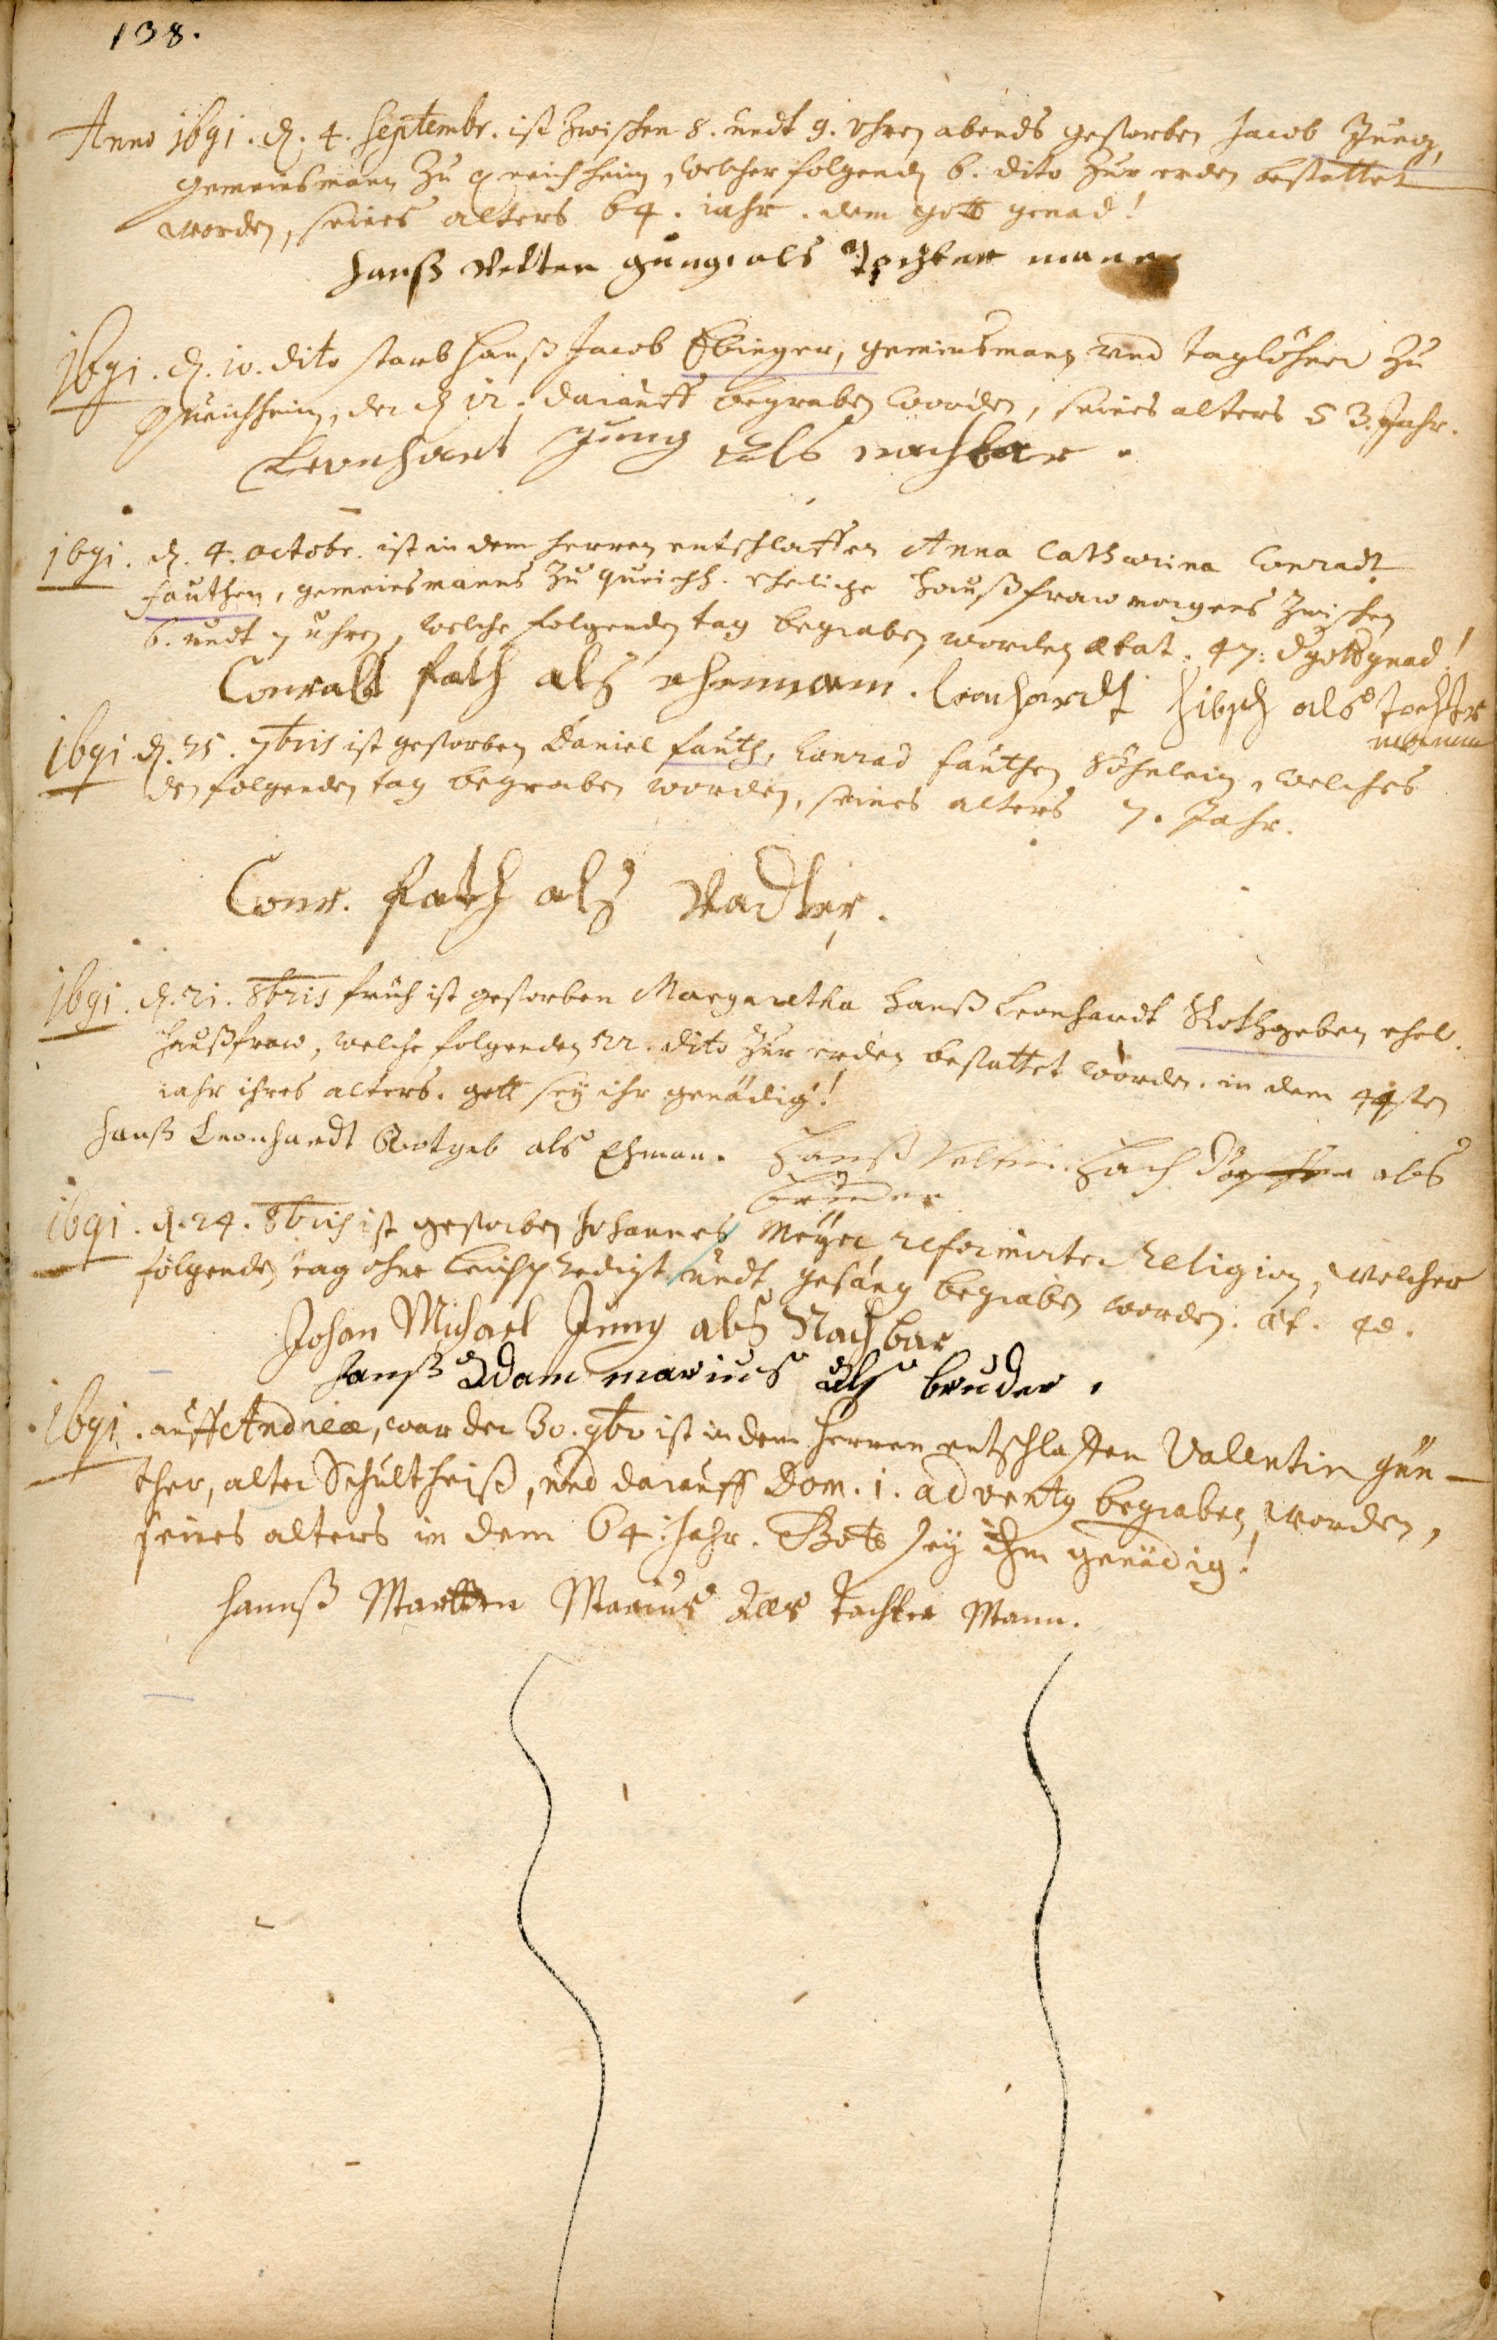 138.
Anno 1691. d. 4. Septembr. ist zwischen 8. undt 9. Uhren abends gestorben Jacob Jung,
gemeinsmann zu queichheim, welcher folgends 6. dito zur erden bestattet
worden, seines alters 64. iahr. dem gott genad!
Hanß Velten Jung als tochter mann
1691. d. 10. dito starb Hanß Jacob Ebinger, gemeinsmann und taglöhner zu
queichheim, der d. 12. darauff begraben worden, seines alters 53. Jahr.
Leonhart Jung als nachbar.
1691. d. 4. octobr. ist in dem herren entschlaffen Anna Catharina Conradt
Fauthen, gemeinsmanns zu queichh. eheliche haußfraw morgens zwischen
6. undt 7 uhren, welche folgenden tag begraben worden ætat. 47. d gott gnad!
Conradt Fath als ehemann. Leonhardt als tochter
mann
1691 d. 25. 7bris ist gestorben Daniel Fauth, Conrad Fauthen Söhnlein, welches
den folgenden tag begraben worden, seines alters 7. Jahr.
Conr. Fath als Vadter.
1691. d. 21. 8bris früh ist gestorben Margaretha Hanß Leonhardt Rothgeben ehel.
haußfraw, welche folgenden 22. dito zur erden bestattet worden. in dem 44sten
iahr ihres alters. gott sey ihr genädig!
Hanß Leonhardt Rotgeb als Ehman. Hanß Velten als
bruder
1691. d. 24. 8bris ist gestorben Johannes Meyer reformirter Religion, welcher
folgenden tag ohne Leichpredigt undt gesäng begraben worden. æt. 40.
Johan Michael Jung als Nachbar
Hanß Adam marius als bruder.
1691. auff Andreæ, war der 30. 9br ist in dem herren entschlaffen Valentin Gün-
ther, alter Schultheiß, und darauff Dom. 1. advent begraben worden,
seines alters in dem 64. Jahr. Gott sey ihm genädig!
Hannß Martten Marius als tochter Mann.